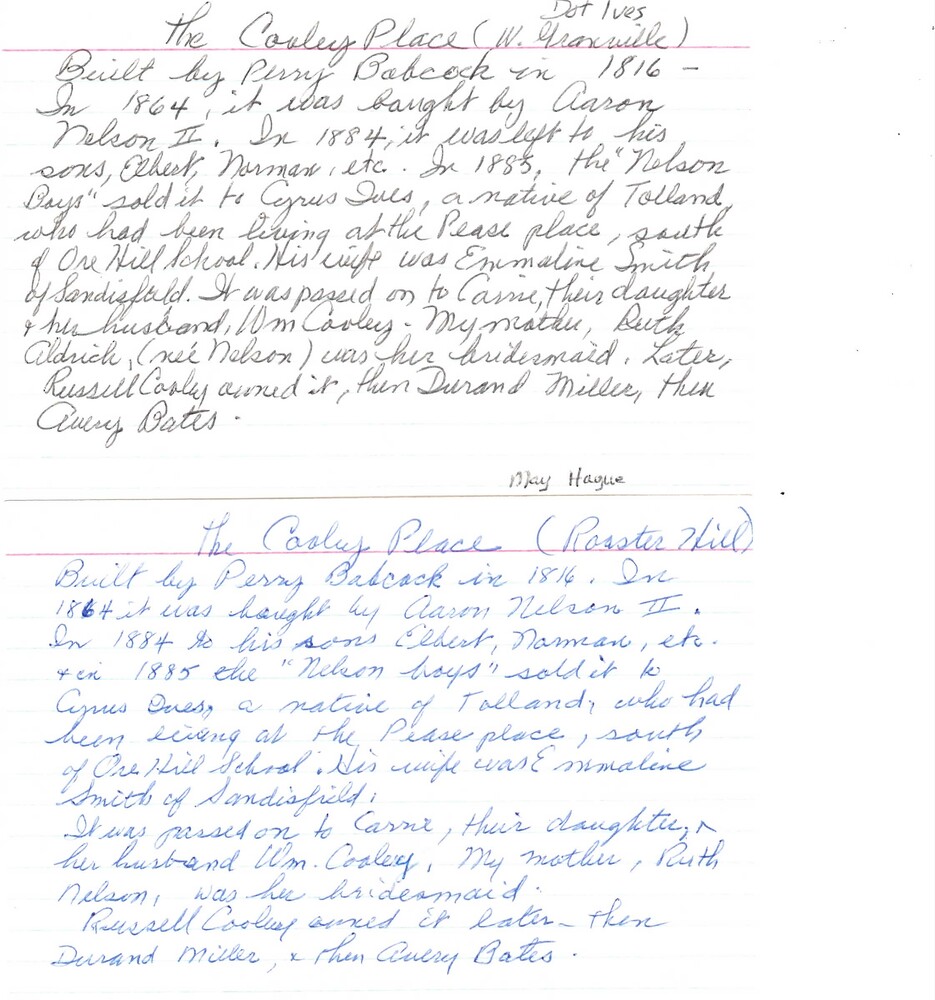 Dot Ives
The Cooley Place (W. Granville)
Built by Perry Babcock in 1816 -
In 1864, it was bought by Aaron
Nelson II. In 1884, it was left to his
sons, Elbert, Norman, etc. In 1885, the "Nelson
Boys" sold it to Cyrus Ives, a native of Tolland,
who had been living at the Pease place, south
of Ore Hill School. His wife was Emmaline Smith
of Sandisfield. It was passed on to Carrie, their daughter
+ her husband, Wm Cooley - My mother, Ruth
Aldrich, (neé Nelson) was her bridesmaid. Later,
Russell Cooley owned it, then Durand Miller, then
Avery Bates.
May Hague
The Cooley Place (Rooster Hill)
Built by Perry Babcock in 1816. In
1864 it was bought by Aaron Nelson II.
In 1884 to his sons Elbert, Norman, etc.
+ in 1885 the "Nelson boys" sold it to
Cyrus Ives, a native of Tolland, who had
been living at the Pease place, south
of Ore Hill School. His wife was Emmaline
Smith of Sandisfield.
It was passed on to Carrie, their daughter, +
her husband Wm. Cooley. My mother, Ruth
Nelson, was her bridesmaid.
Russell Cooley owned it later - then
Durand Miller, + then Avery Bates.